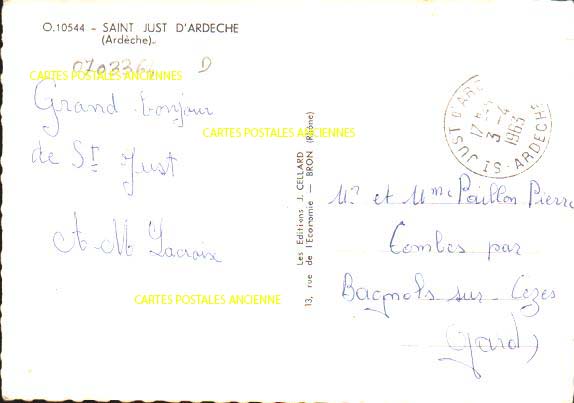 O.10544 - SAINT JUST D'ARDECHE
(Ardèche).
D
CARTES POSTALES ANCIENNES
Grand bonjour
CARTES POSTALES ANCIENNES
de St Just
A-M Lacroix
CARTES POSTALES ANCIENNE
Les Editions J. CELLARD
13, rue de l'Economie — BRON (Rhône)
ST JUST D'ARD
17H
3-4
1963
ARDECHE
Mr et Mme Paillon Pierre
Combes par
Bagnols sur-Cèzes
Gard)